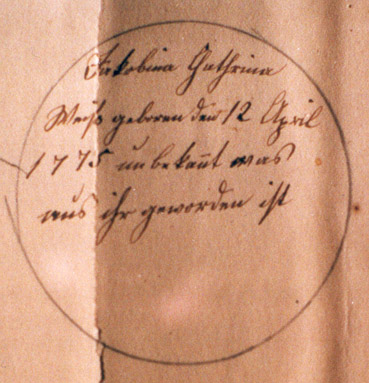 Jakobina Cathrina
Weiß geboren den 12 April
1775 unbekan̅t was
aus ihr geworden ist